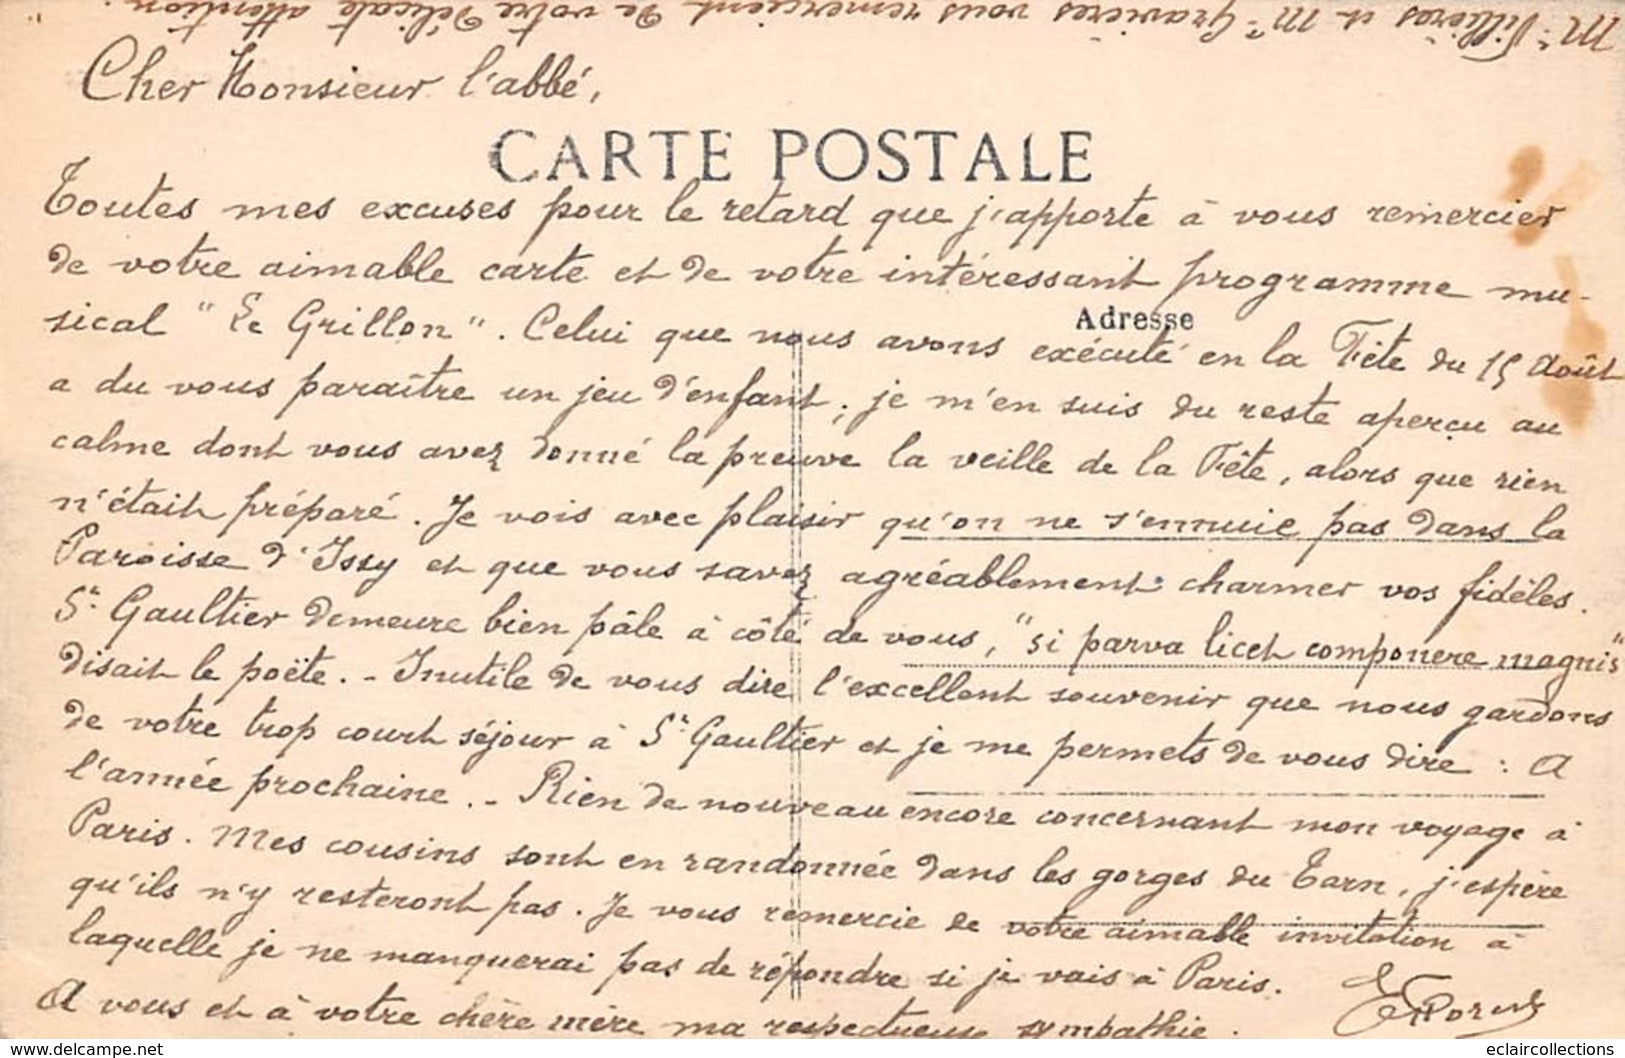 Mr Villiéras et Mr Gravières vous remercient de votre délicate attention.
Cher Monsieur l'abbé,
CARTE POSTALE
Toutes mes excuses pour le retard que j'apporte à vous remercier
de votre aimable carte et de votre intéressant programme mu-
sical "Le Grillon". Celui que nous avons exécuté en la Fête du 15 Août
Adresse
a du vous paraître un jeu d'enfant; je m'en suis du reste aperçu au
calme dont vous avez donné la preuve la veille de la Fête, alors que rien
n'était préparé. Je vois avec plaisir qu'on ne s'ennuie pas dans la
Paroisse d'Issy et que vous savez agréablement charmer vos fidèles.
St Gaultier demeure bien pâle à côté de vous, "si parva licet componere magnis"
disait le poëte. - Inutile de vous dire l'excellent souvenir que nous gardons
de votre trop court séjour à St Gaultier et je me permets de vous dire : A
l'année prochaine. - Rien de nouveau encore concernant mon voyage à
Paris. Mes cousins sont en randonnée dans les gorges du Tarn, j'espère
qu'ils n'y resteront pas. Je vous remercie de votre aimable invitation à
laquelle je ne manquerai pas de répondre si je vais à Paris.
A vous et à votre chère mère ma respectueuse sympathie.
eclaircollections
www.delcampe.net